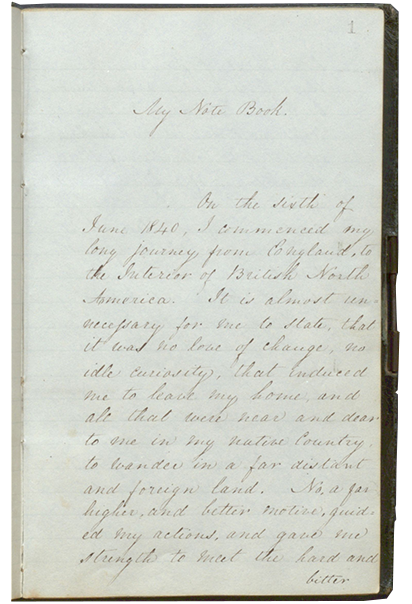 1
My Note Book.
On the sixth of
June 1840, I commenced my
long journey, from England, to
the Interior of British North
America. It is almost un-
necessary for me to state, that
it was no love of change, no
idle curiosity, that induced
me to leave my home, and
all that were near and dear
to me in my native Country,
to wander in a far distant
and foreign land. No, a far
higher, and better motive, guid-
ed my actions, and gave me
strength to meet the hard and
bitter